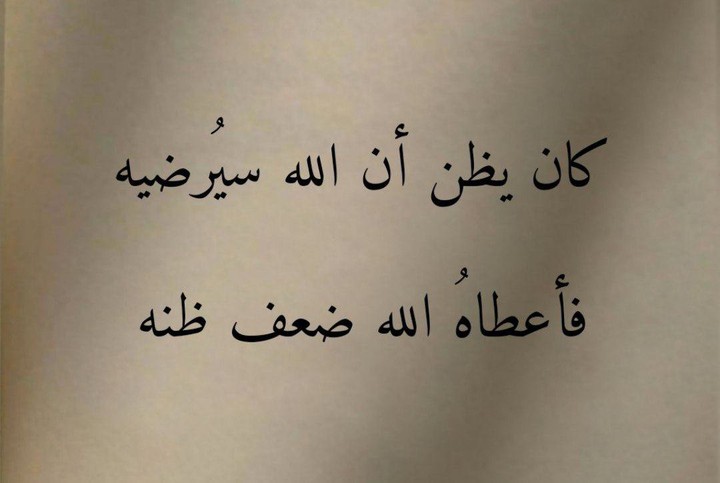 كان يظن أن الله سيُرضيه
فأعطاهُ الله ضعف ظنه